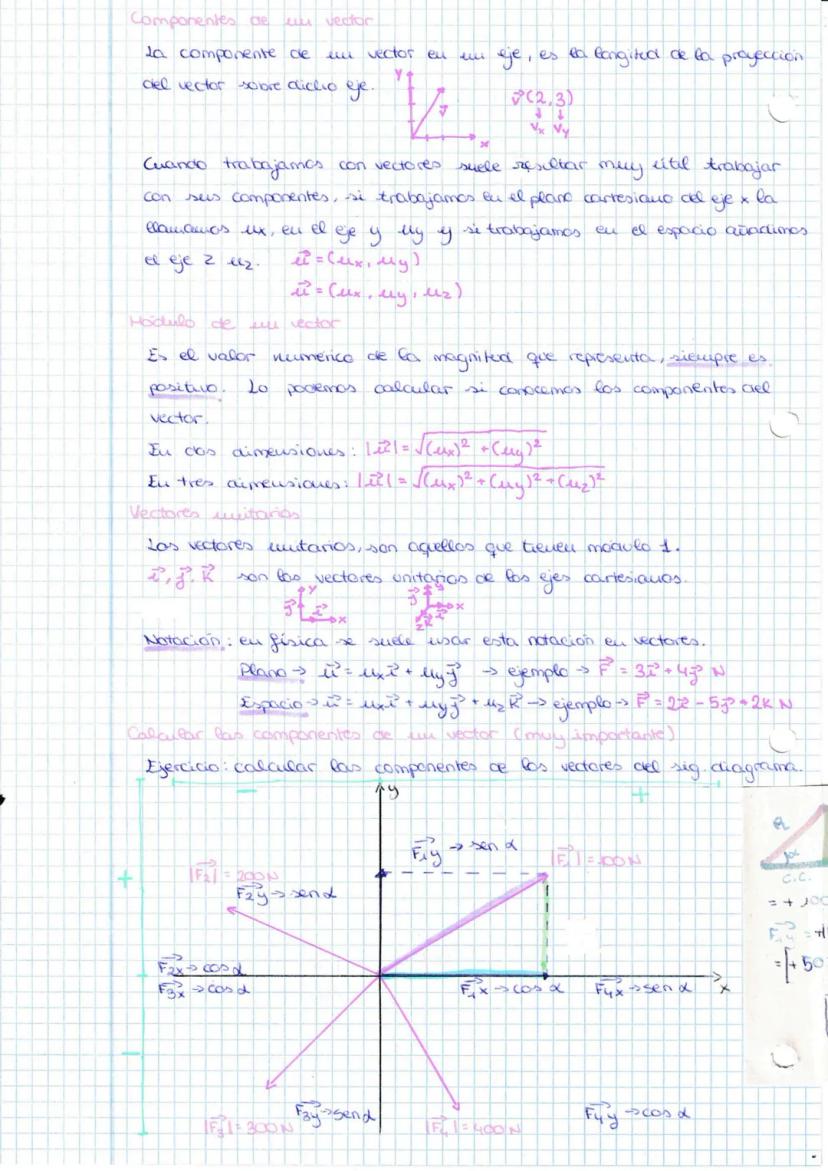 Componentes de un vector
La componente de un vector en un eje, es la longitud de la proyección
del vector sobre dicho eje.
y
v⃗
x
v⃗(2,3)
↓ ↓
Vx Vy
Cuando trabajamos con vectores suele resultar muy útil trabajar
con sus componentes, si trabajamos en el plano cartesiano del eje x la
llamamos ux, en el eje y uy y si trabajamos en el espacio añadimos
el eje z uz. u⃗ = (ux, uy)
u⃗ = (ux, uy, uz)
Módulo de un vector
Es el valor numérico de la magnitud que representa, siempre es
positivo. Lo podemos calcular si conocemos los componentes del
vector.
En dos dimensiones: |u⃗| = √(ux)² + (uy)²
En tres dimensiones: |u⃗| = √(ux)² + (uy)² + (uz)²
Vectores unitarios
Los vectores unitarios, son aquellos que tienen módulo 1.
i⃗, j⃗, k⃗ son los vectores unitarios de los ejes cartesianos.
y j⃗ i⃗ x
y j⃗ i⃗ x k⃗ z
Notación: en física se suele usar esta notación en vectores.
Plano → u⃗ = uxi⃗ + uyj⃗ → ejemplo → F⃗ = 3i⃗ + 4j⃗ N
Espacio → u⃗ = uxi⃗ + uyj⃗ + uzk⃗ → ejemplo → F⃗ = 2i⃗ - 5j⃗ + 2k N
Calcular las componentes de un vector (muy importante)
Ejercicio: calcular las componentes de los vectores del sig. diagrama.
- y +
F₁y → sen α
|F₁| = 100N
+
|F₂| = 200N
F₂y → sen α
F₂x → cos α
F₃x → cos α
F₁x → cos α
F₄x → sen α
x
-
F₃y → sen α
|F₃| = 300N
|F₄| = 400N
F₄y → cos α
α
C.C.
= + 100
F₁y = +
= [+ 50